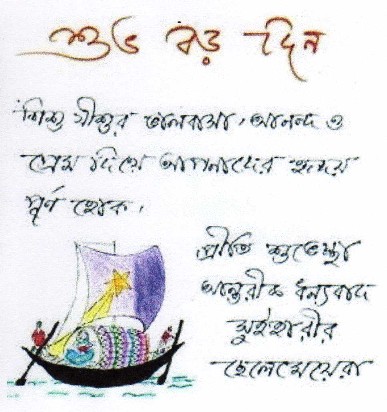 শুভ বড় দিন
শিশু যীশুর ভালবাসা, আনন্দ ও
প্রেম দিয়ে আপনাদের হৃদয়
পূর্ণ হোক,
প্রীতি শুভেচ্ছা
আন্তরীক ধন্যবাদ
সুইহারীর
ছেলেমেয়েরা